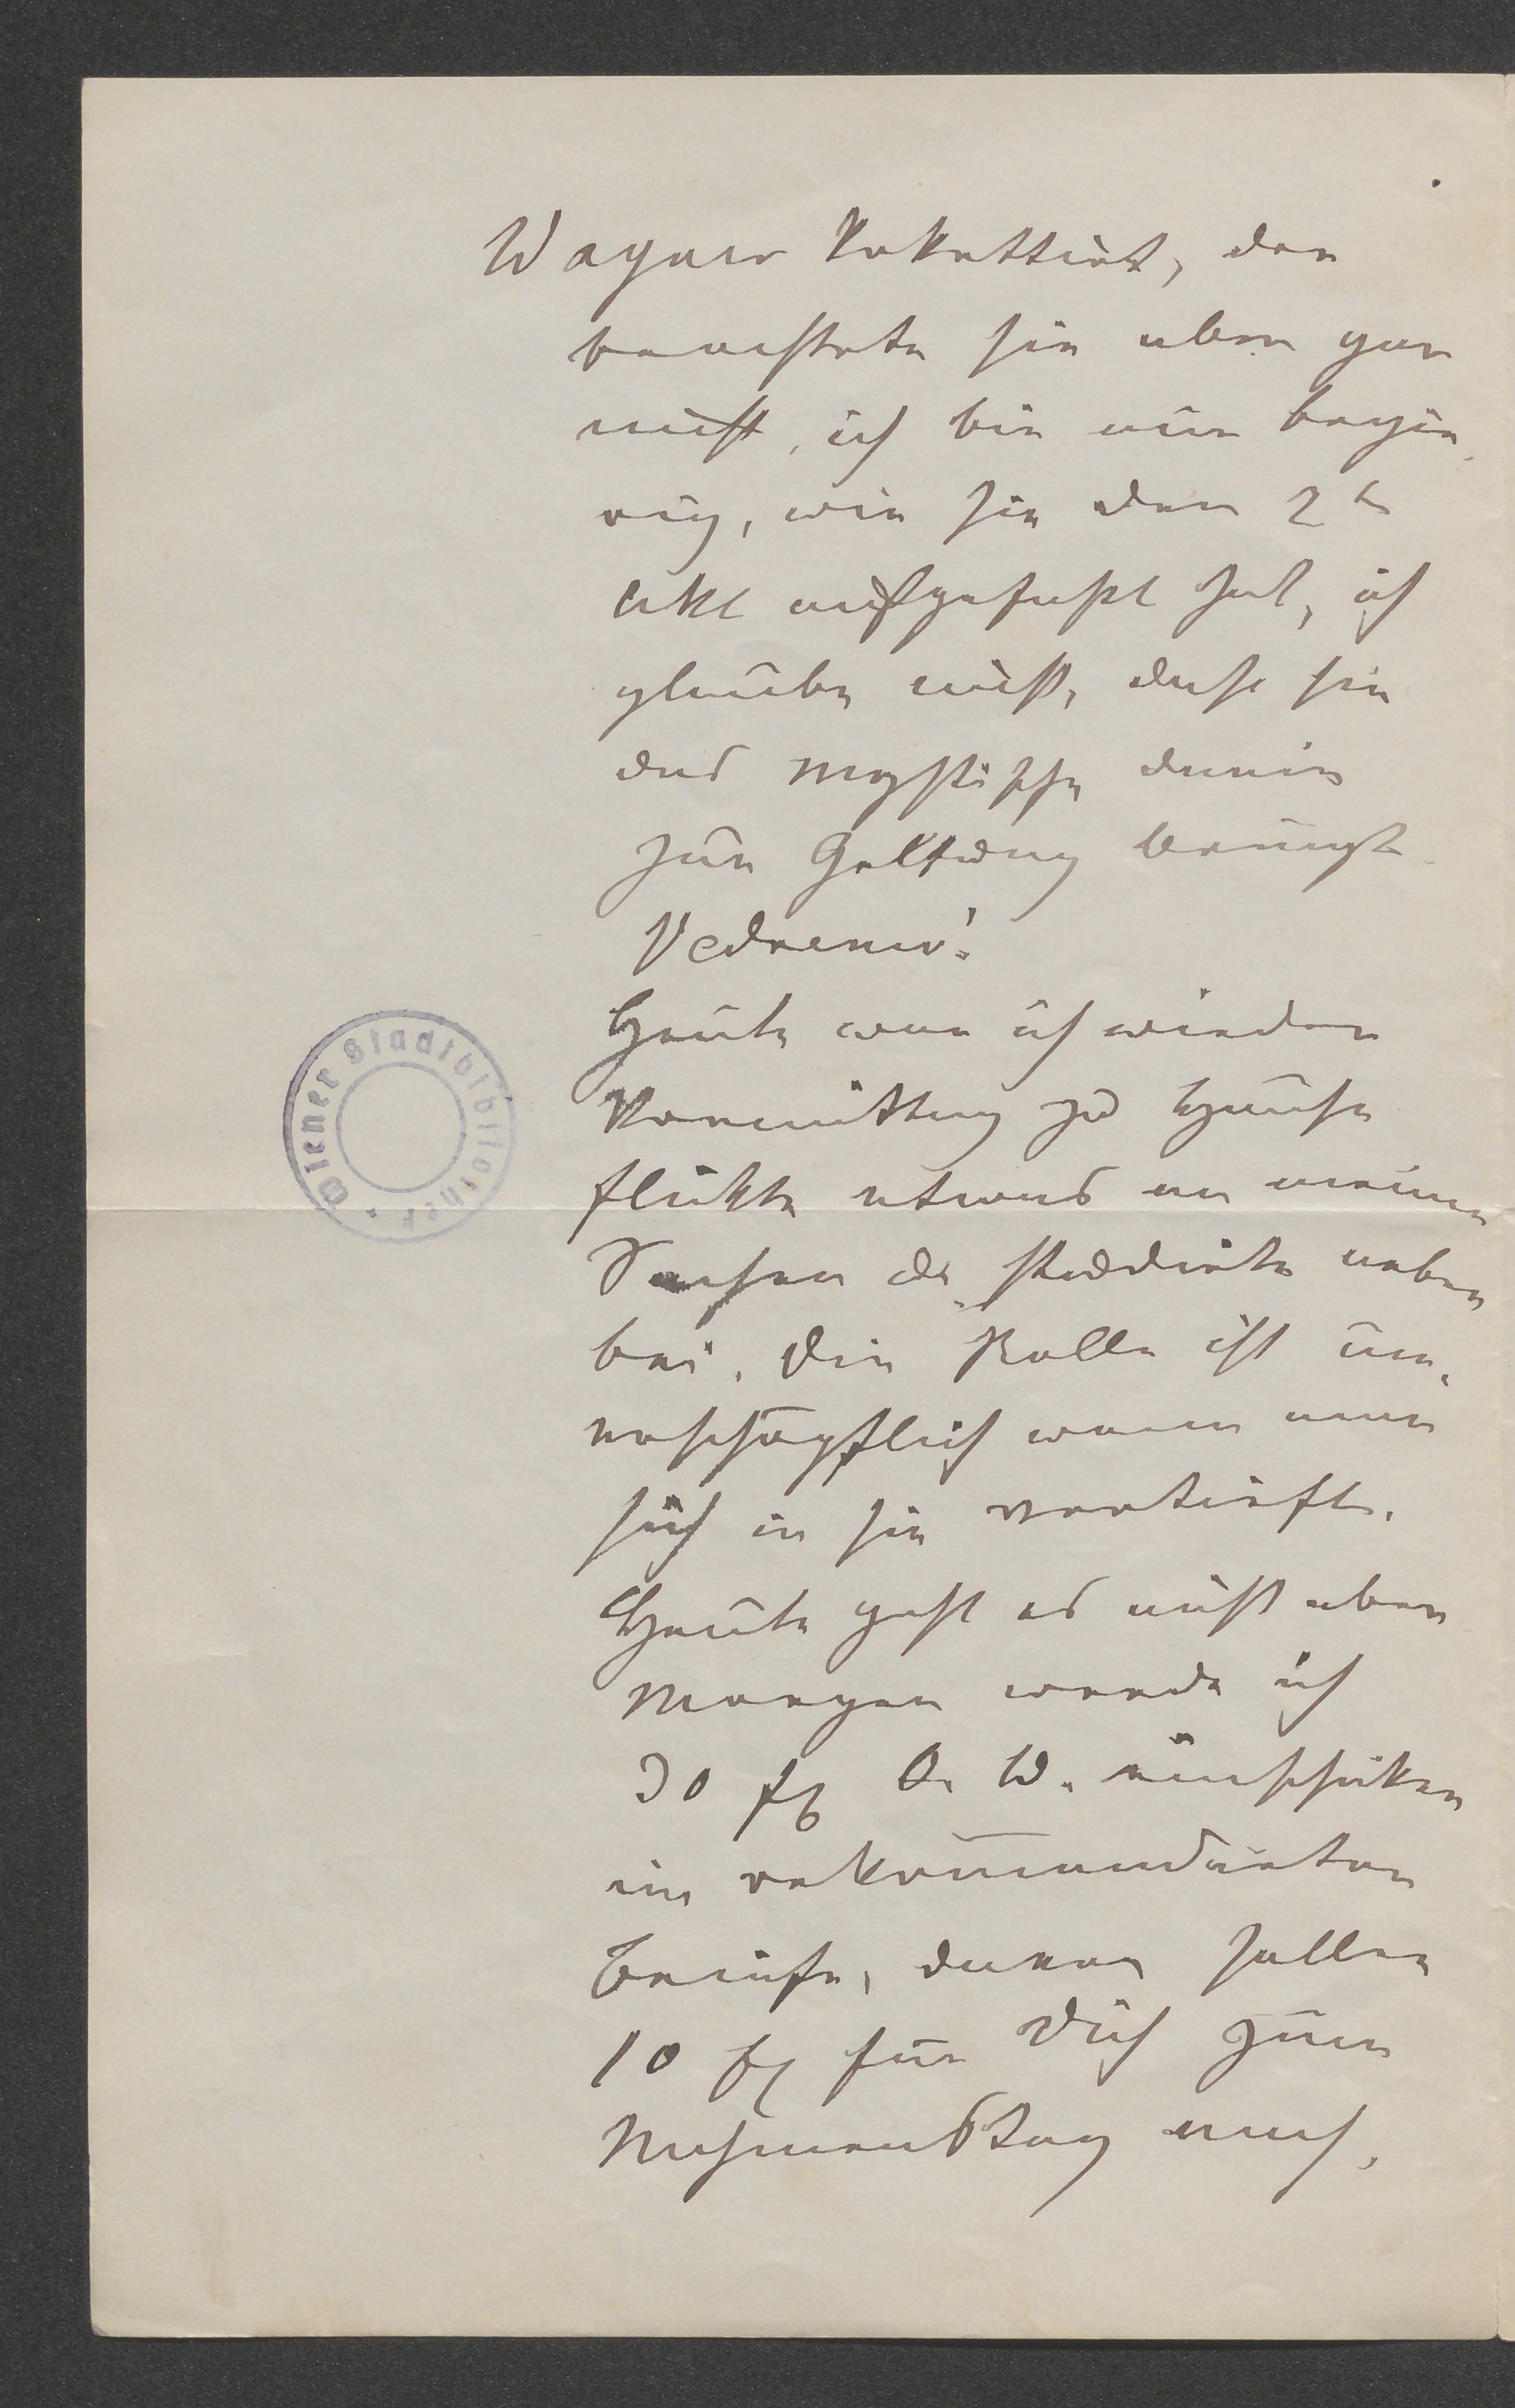 Wagner kokettirt, der
beachtete sie aber gar
nicht, ich bin nur begie-
rig, wie sie den 2t
Akt aufgefaßt hat, ich
glaube nicht, daß sie
das Mystische darin
zur Geltung bringt.
Vedremo!
Heute war ich wieder
Vormittag zu Hause
flickte etwas an meinen
Sachen & studdirte neben
bei, die Rolle ist un-
erschöpflich wenn man
sich in sie vertieft.
Heute geht es nicht aber
Morgen werde ich
30 fl Ö. W. einschicken
im rekomandirten
Briefe, davon sollen
10 fl für Dich zum
Nahmenstag auch,
Wiener Stadtbibliothek